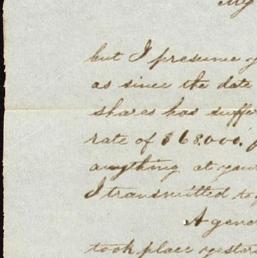 My
but I presume y
as since the date
shares has suffe
rate of $68.000.
anything at your
I transmitted to
A gener
took place yester